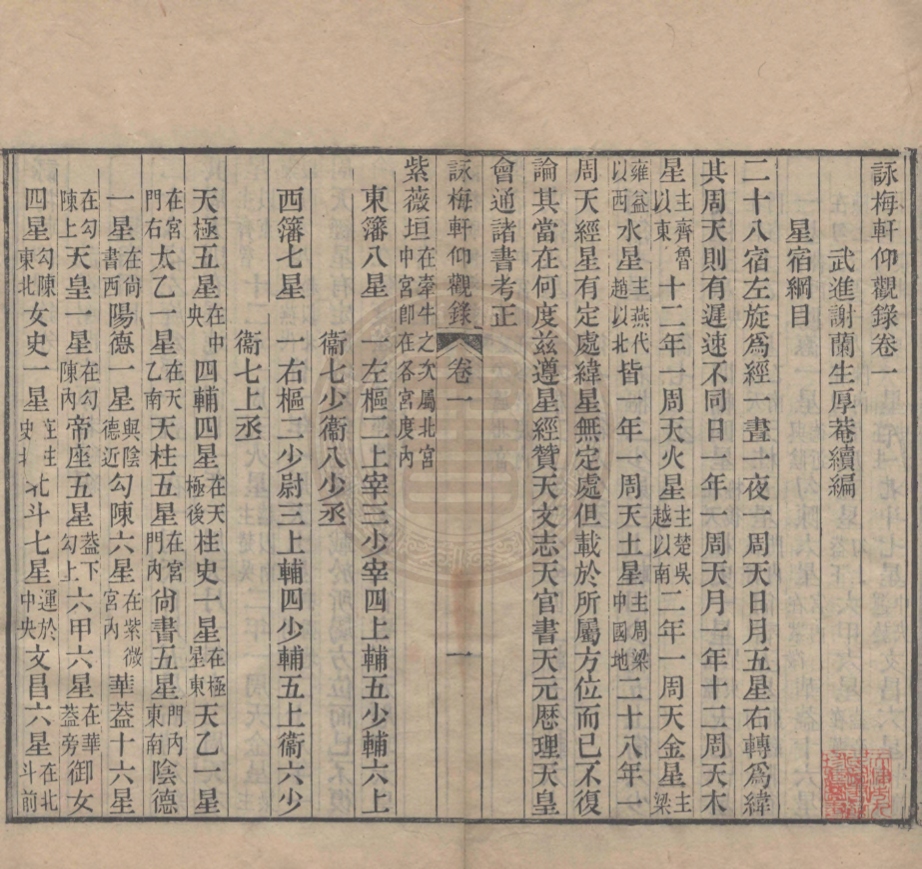 詠梅軒仰觀錄卷一
武進謝蘭生厚菴續編
星宿綱目
二十八宿左旋爲經一晝一夜一周天日月五星右轉爲緯
其周天則有遲速不同日一年一周天月一年十二周天木
星主齊魯以東十二年一周天火星主楚吳越以南二年一周天金星主梁
雍益以西水星主燕代趙以北皆一年一周天土星主周梁中國地二十八年一
周天經星有定處緯星無定處但載於所屬方位而已不復
論其當在何度茲遵星經贊天文志天官書天元曆理天皇
會通諸書考正
詠梅軒仰觀錄 卷一 一
紫薇垣在牽牛之次屬北宮中宮卽在各宮度內
東籓八星 一左樞二上宰三少宰四上輔五少輔六上
衞七少衞八少丞
西籓七星 一右樞二少尉三上輔四少輔五上衞六少
衞七上丞
天極五星在中央四輔四星在天極後柱史一星在極星東天乙一星
在宮門右太乙一星在天乙南天柱五星在宮門內尙書五星門內東南陰德
一星在尙書西陽德一星與陰德近勾陳六星在紫微宮內華葢十六星
在勾陳上天皇一星在勾陳內帝座五星葢下勾上六甲六星在華葢旁御女
四星勾陳東北女史一星在柱史北北斗七星運於中央文昌六星在北斗前